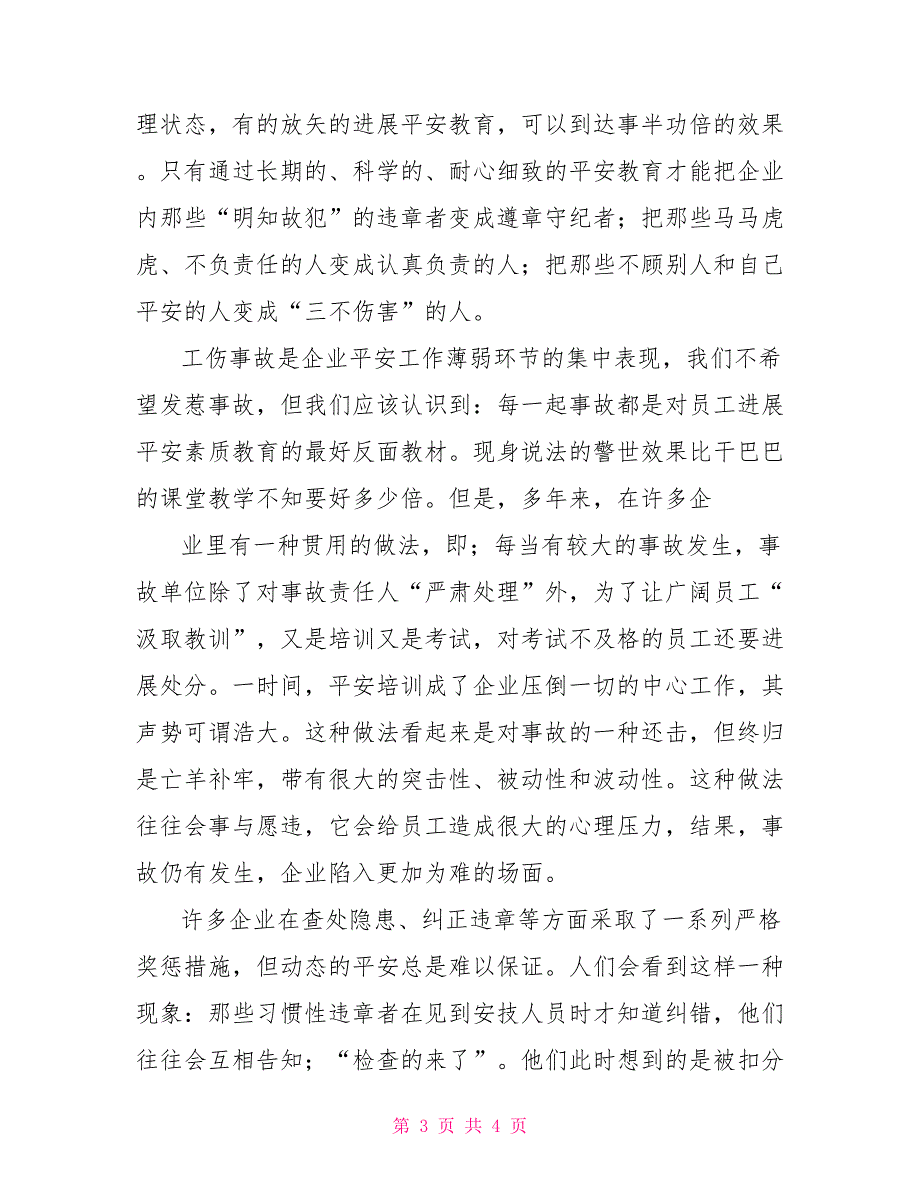 理状态，有的放矢的进展平安教育，可以到达事半功倍的效果
。只有通过长期的、科学的、耐心细致的平安教育才能把企业
内那些“明知故犯”的违章者变成遵章守纪者；把那些马马虎
虎、不负责任的人变成认真负责的人；把那些不顾别人和自己
平安的人变成“三不伤害”的人。
工伤事故是企业平安工作薄弱环节的集中表现，我们不希
望发惹事故，但我们应该认识到：每一起事故都是对员工进展
平安素质教育的最好反面教材。现身说法的警世效果比干巴巴
的课堂教学不知要好多少倍。但是，多年来，在许多企
业里有一种贯用的做法，即；每当有较大的事故发生，事
故单位除了对事故责任人“严肃处理”外，为了让广阔员工“
汲取教训”，又是培训又是考试，对考试不及格的员工还要进
展处分。一时间，平安培训成了企业压倒一切的中心工作，其
声势可谓浩大。这种做法看起来是对事故的一种还击，但终归
是亡羊补牢，带有很大的突击性、被动性和波动性。这种做法
往往会事与愿违，它会给员工造成很大的心理压力，结果，事
故仍有发生，企业陷入更加为难的场面。
许多企业在查处隐患、纠正违章等方面采取了一系列严格
奖惩措施，但动态的平安总是难以保证。人们会看到这样一种
现象：那些习惯性违章者在见到安技人员时才知道纠错，他们
往往会互相告知；“检查的来了”。他们此时想到的是被扣分
第 3 页 共 4 页